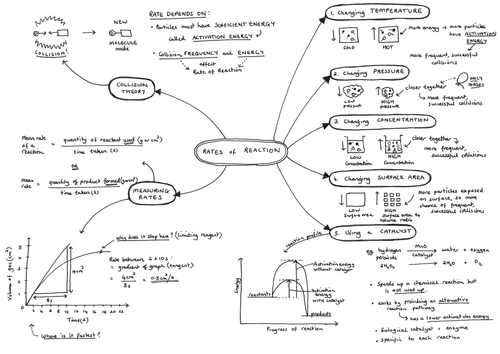 RATES of REACTION
COLLISION
THEORY
COLLISION!
NEW
MOLECULE
made
RATE DEPENDS ON:
• Particles must have SUFFICIENT ENERGY
called ACTIVATION ENERGY
• Collision FREQUENCY and ENERGY
affect
Rate of Reaction
1. Changing TEMPERATURE
COLD
HOT
more energy → more particles
have ACTIVATION
ENERGY
more frequent, successful
collisions
2. Changing PRESSURE
LOW
PRESSURE
HIGH
PRESSURE
closer together
ONLY
GASES
more frequent,
successful collisions
3. Changing CONCENTRATION
LOW
Concentration
HIGH
Concentration
closer together
more frequent,
successful collisions
4. Changing SURFACE AREA
LOW
Surface area
HIGH
Surface area to
Volume ratio
More particles exposed
on surface, so more
chance of frequent,
successful collisions
5. Using a CATALYST
reaction profile
Energy
Activation energy
without catalyst
Activation
energy
with catalyst
reactants
products
Progress of reaction
eg hydrogen
peroxide
MnO
Catalyst
water + oxygen
2H₂O₂
2H₂O + O₂
• Speeds up a chemical reaction but
is not used up
• Works by providing an alternative
reaction pathway
has a lower activation energy
• biological catalyst = enzyme
• specific to each reaction
MEASURING
RATES
Mean rate
of a
reaction
= quantity of reactant used (g or cm³)
time taken (s)
OR
mean
rate
= quantity of product formed (g or cm³)
time taken (s)
Volume of gas (cm³)
5
4
3
2
1
0
2 4 6 8 10 12 14 16 18 20 22
Time(s)
4cm³
8s
Why does it stop here? (limiting reagent)
Rate between 2 & 10s:
= gradient of graph (tangent)
= 4cm³
8s
= 0.5cm³/s
Where is it fastest?